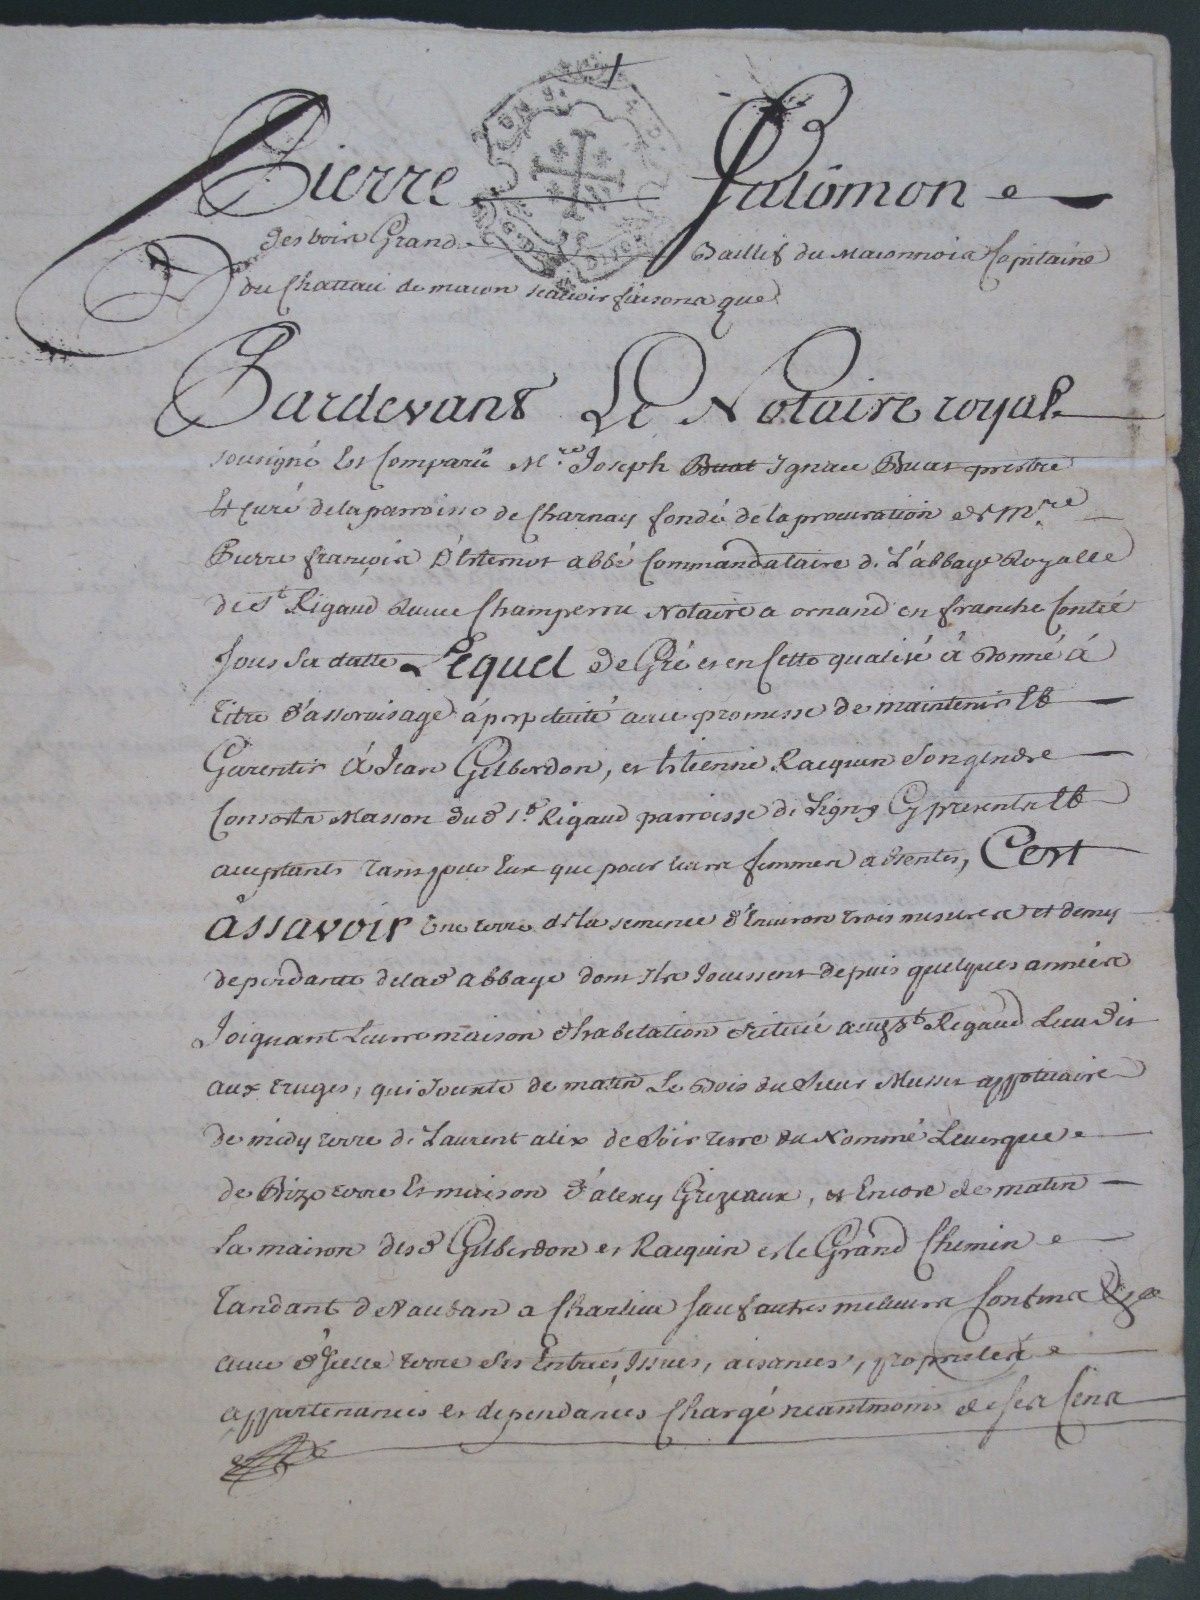 Pierre Salomon
Desbois Grand Baillif du Maconnois Capitaine
du Chateau de macon scavoir faisons que
Pardevant Le Notaire royal
sousigné Est Comparu M.re Joseph Buat Ignace Buat prestre
Et curé de la parroisse de Charnay fondé de la procuration de Mre
Pierre françois D'Esternot abbé Commandataire de L'abbaye Royalle
de St Rigaud Champerou Notaire a ornand en franche Contée
sous sa datte Lequel de Gré et en Cette qualité à Donné á
titre d'asservisage á perpetuité avec promesse de maintenir et
Garentir á Jean Gilberdon, et Etienne Racquin son gendre
Consorts Masson du d St Rigaud parroisse de Ligny Cy presents et
acceptants tant pour Eux que pour leurs femmes absentes, C'est
âssavoir Une terre de la semence d'Environ trois mesures et demy
dependante de la d abbaye dont Ils Jouissent depuis quelques années
Joignant Leurre maison d'habitation scituée St Rigaud Lieu dit
aux truges, qui Jouxte de matin Le Bois du sieur Musset appotiaire
de midy terre de Laurent alix de soir terre du Nommé Levesque
de Bize terre Et maison d'alexy Grizeaux, et Encore de matin
La maison des d Gilberdon et Racquin et le Grand Chemin
Tandant de Nauban a Charlieu sauf autres meilleurs Confins
avec d'Icelle terre ses Entrées, Issues, aisances, proprietés
appartenances et dependances Chargé neantmoins de ses Cens